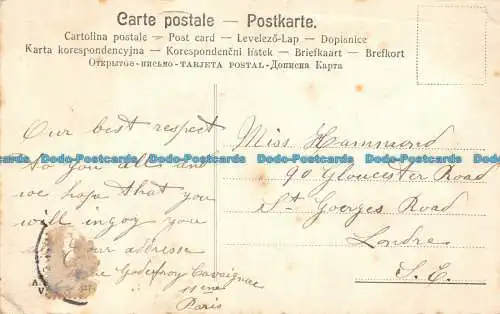 Carte postale – Postkarte.
Cartolina postale – Post card – Levelező-Lap – Dopisnice
Karta korespondencyjna – Korespondenční lístek – Briefkaart – Brefkort
Открытое-письмо-TARJETA POSTAL-Дописна Карта
Our best respect
to you all and
we hope that you
will injoy you
our addresse
Godefroy Cavaignac
11eme
Paris
Miss Hammond
90 Gloucester Road
St Goerges Road
Londre
S. E.
Dodo-Postcards Dodo-Postcards Dodo-Postcards Dodo-Postcards Dodo-Postcards Dodo-Postcards